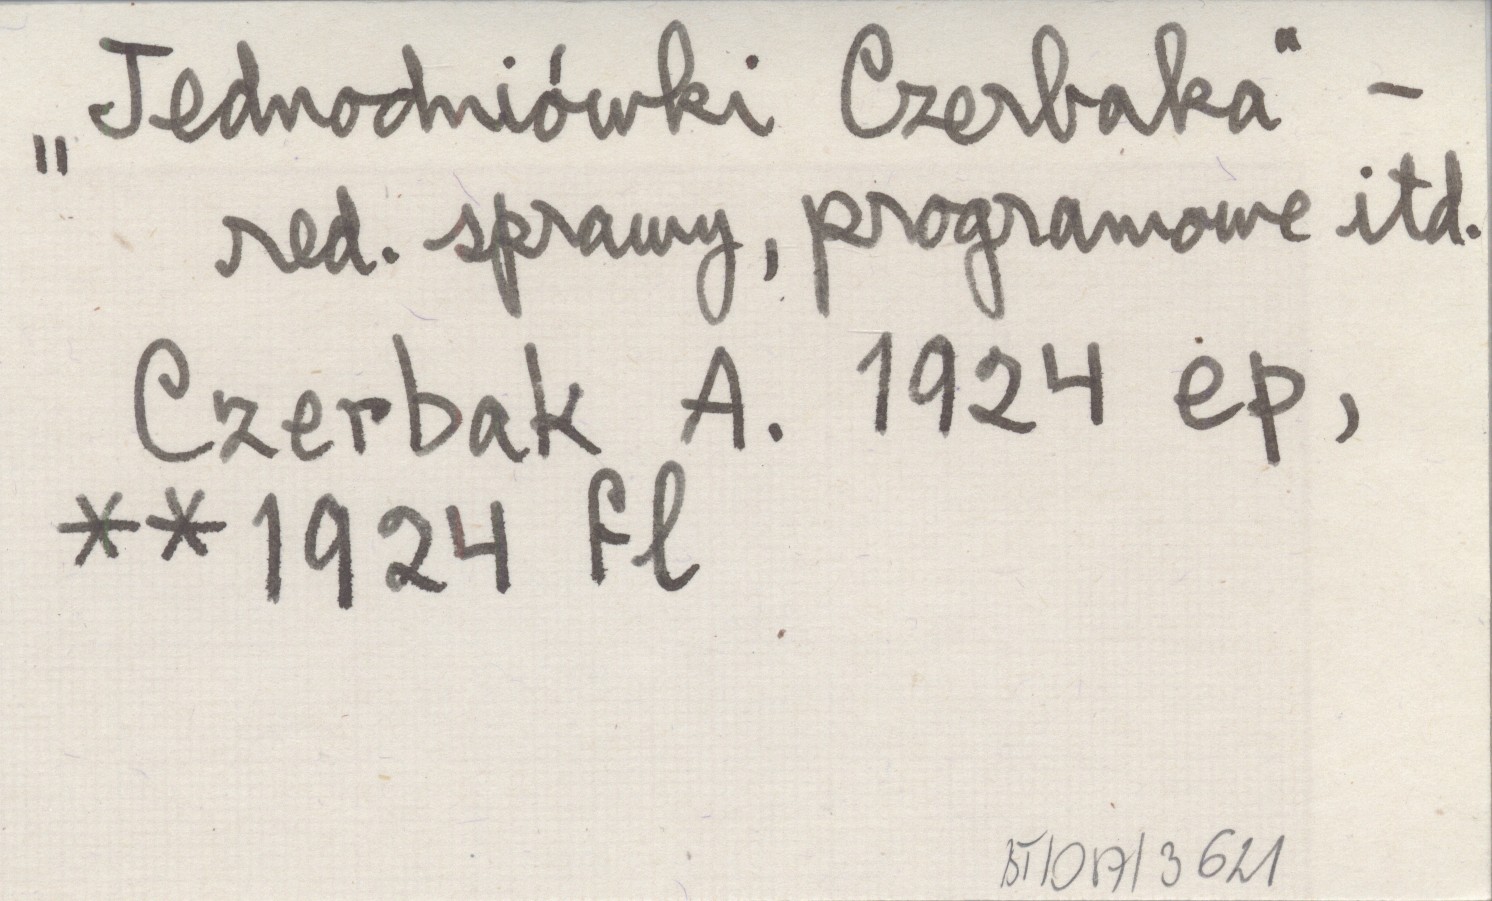 „Jednodniówki Czerbaka" -
red. sprawy, programowe itd.
Czerbak A. 1924 ep,
**1924 fl
BT/017/3621